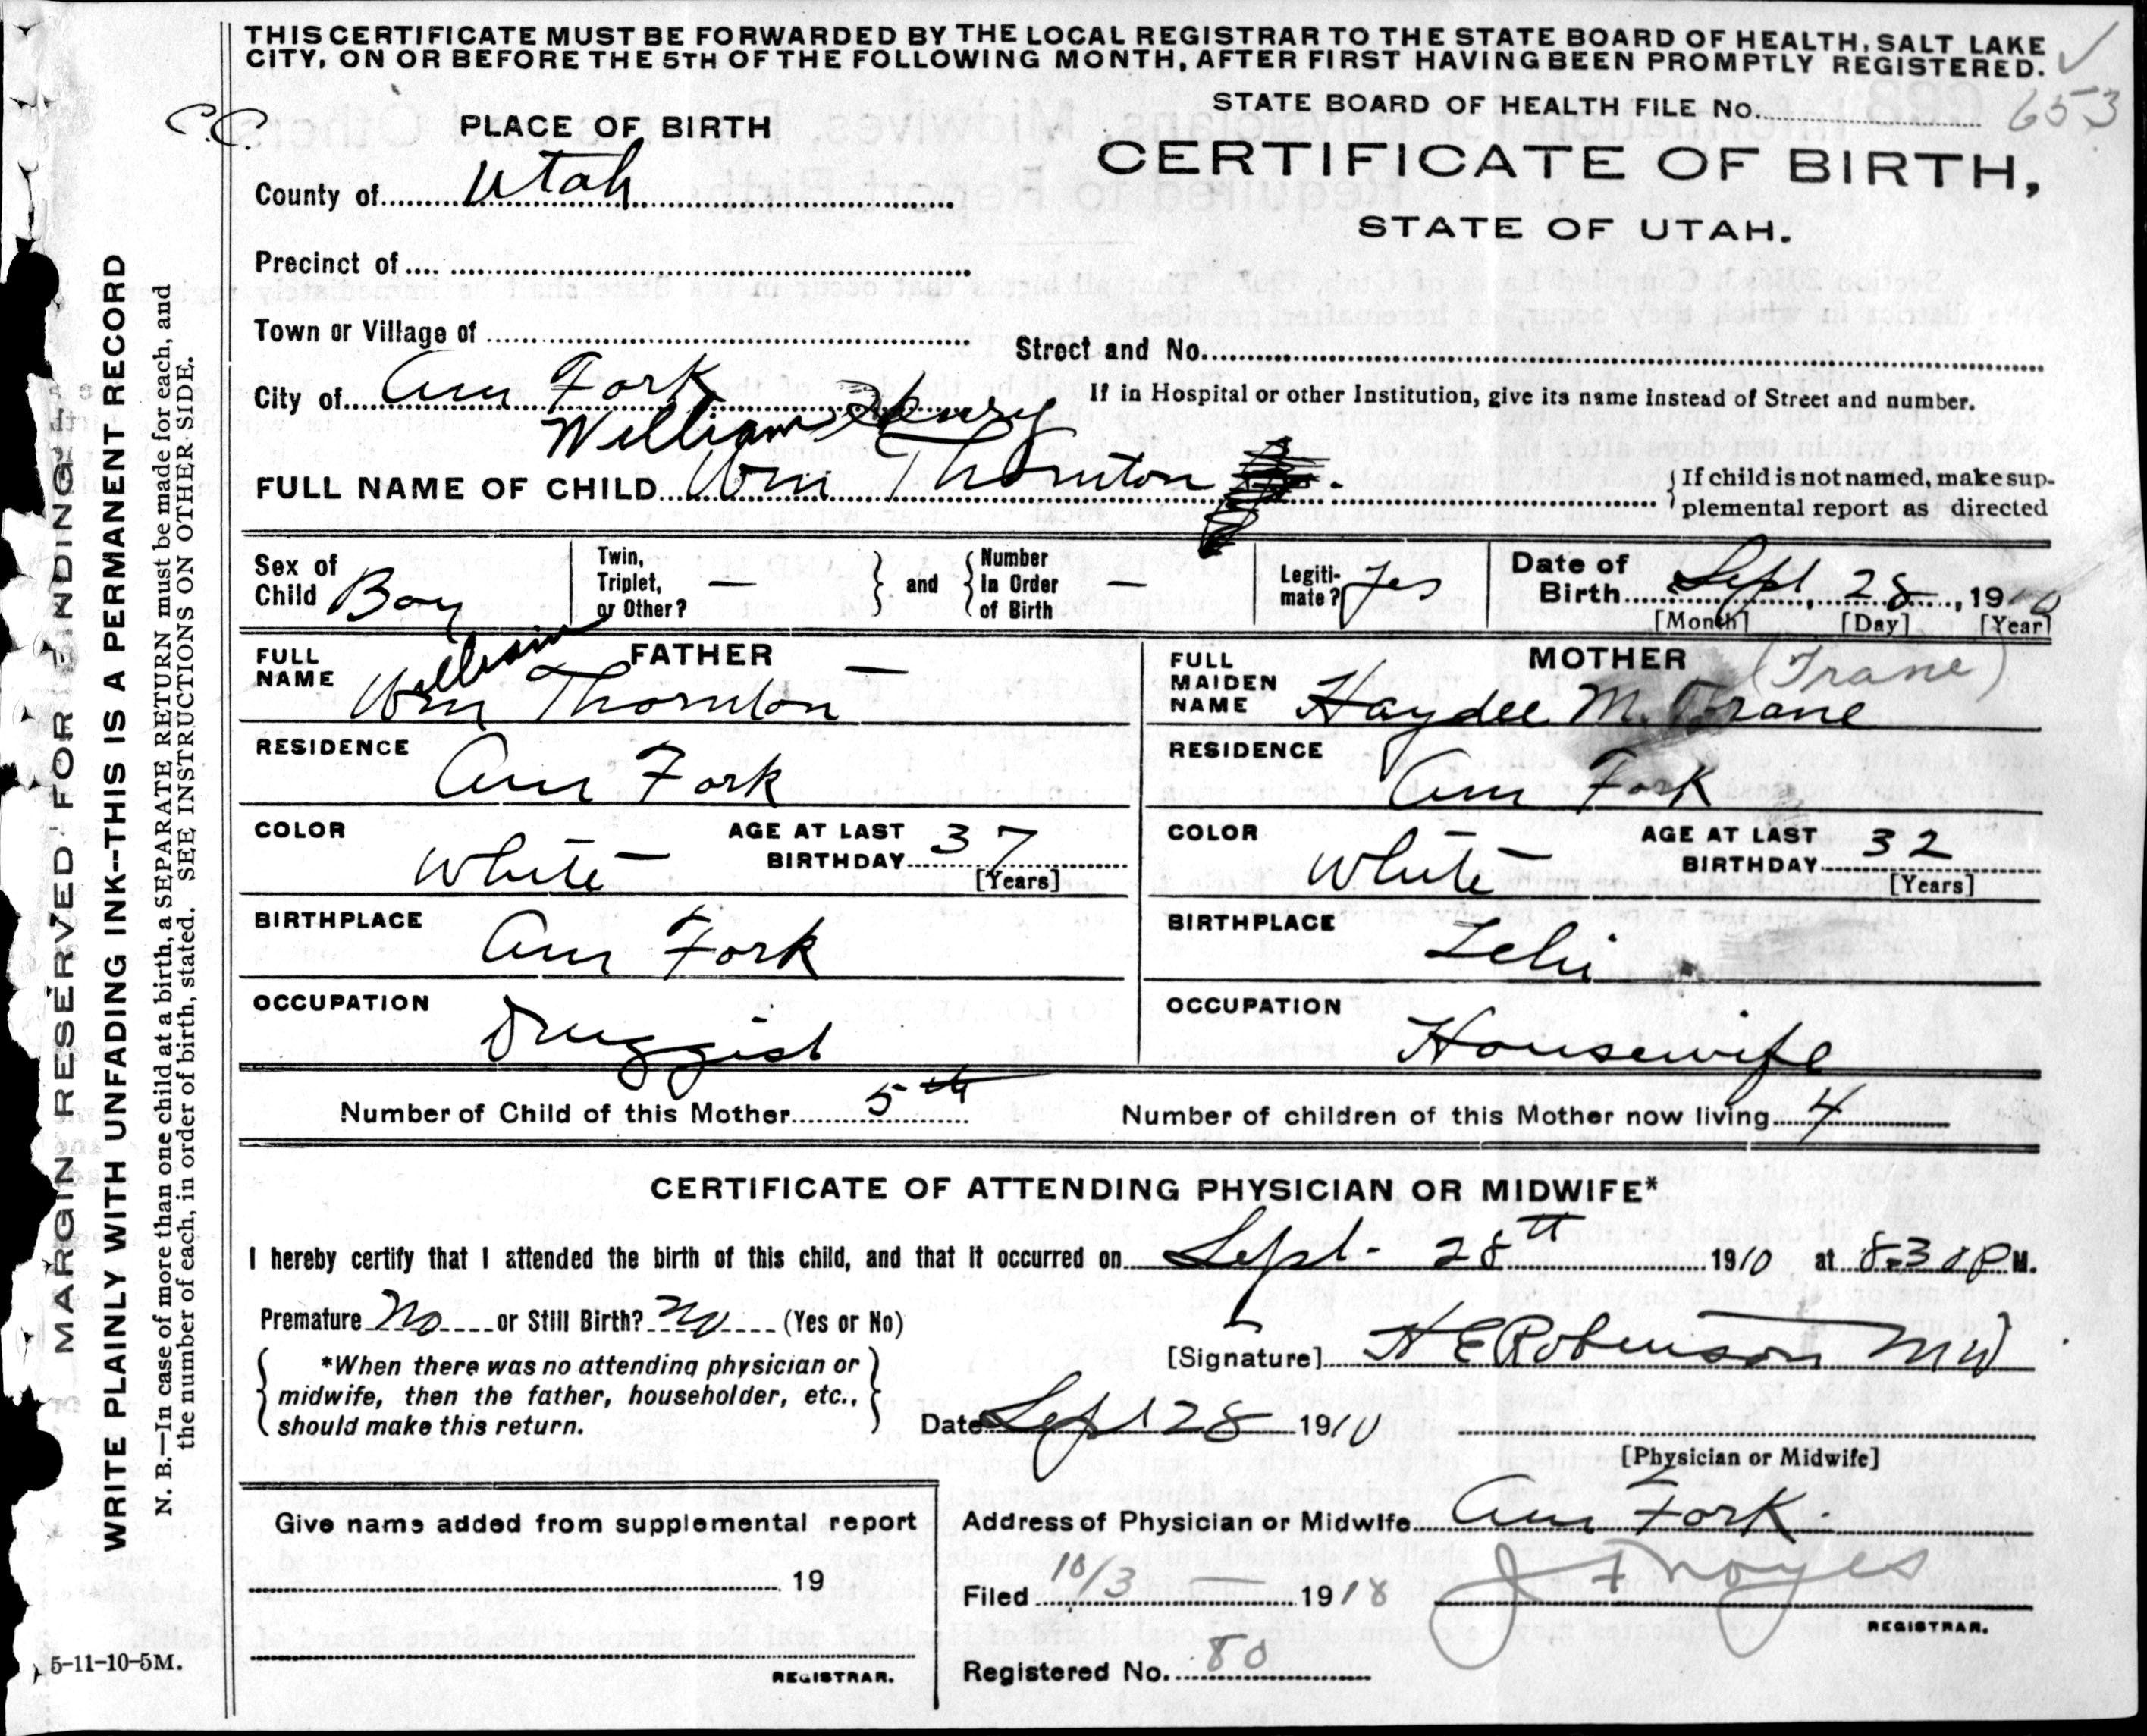 THIS CERTIFICATE MUST BE FORWARDED BY THE LOCAL REGISTRAR TO THE STATE BOARD OF HEALTH, SALT LAKE
CITY, ON OR BEFORE THE 5TH OF THE FOLLOWING MONTH, AFTER FIRST HAVING BEEN PROMPTLY REGISTERED.
STATE BOARD OF HEALTH FILE No. 653
C.C.
PLACE OF BIRTH
CERTIFICATE OF BIRTH,
STATE OF UTAH.
County of Utah
Precinct of
Town or Village of
Street and No.
City of Am Fork
If in Hospital or other Institution, give its name instead of Street and number.
William Henry
FULL NAME OF CHILD Wm Thornton
If child is not named, make sup-
plemental report as directed
Sex of Child Boy
Twin, Triplet, or Other? —
and
Number In Order of Birth —
Legiti-mate? Yes
Date of Birth Sept 28, 1910
[Month] [Day] [Year]
FATHER
FULL NAME Wm Thornton
William
RESIDENCE Am Fork
COLOR White
AGE AT LAST BIRTHDAY 37
[Years]
BIRTHPLACE Am Fork
OCCUPATION Druggist
MOTHER (Trane)
FULL MAIDEN NAME Haydee M. Trane
RESIDENCE Am Fork
COLOR White
AGE AT LAST BIRTHDAY 32
[Years]
BIRTHPLACE Lehi
OCCUPATION Housewife
Number of Child of this Mother 5th
Number of children of this Mother now living 4
CERTIFICATE OF ATTENDING PHYSICIAN OR MIDWIFE*
I hereby certify that I attended the birth of this child, and that it occurred on Sept. 28th 1910 at 8:30 P M.
Premature No or Still Birth? No (Yes or No)
*When there was no attending physician or
midwife, then the father, householder, etc.,
should make this return.
[Signature] H E Robinson MD
Date Sept 28 1910
[Physician or Midwife]
Give name added from supplemental report
19
REGISTRAR.
Address of Physician or Midwife Am Fork.
Filed 10/3 — 1910
J F Noyes
REGISTRAR.
Registered No. 80
5-11-10-5M.
MARGIN RESERVED FOR BINDING
WRITE PLAINLY WITH UNFADING INK--THIS IS A PERMANENT RECORD
N. B.—In case of more than one child at a birth, a SEPARATE RETURN must be made for each, and
the number of each, in order of birth, stated. SEE INSTRUCTIONS ON OTHER SIDE.